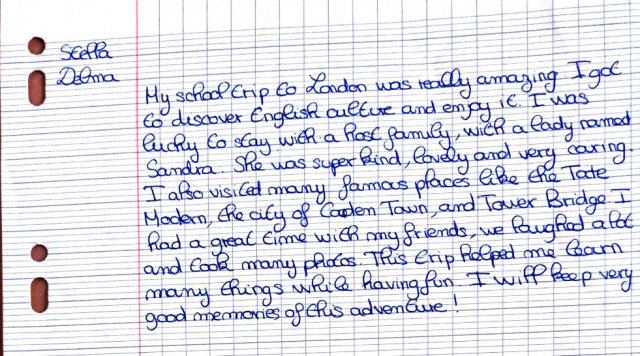 Stella
Delma
My school trip to London was really amazing. I got
to discover English culture and enjoy it. I was
lucky to stay with a host family, with a lady named
Sandra. She was super kind, lovely and very caring.
I also visited many famous places like the Tate
Modern, the city of Camden Town, and Tower Bridge I
had a great time with my friends, we laughed a lot
and took many photos. This trip helped me learn
many things while having fun. I will keep very
good memories of this adventure !